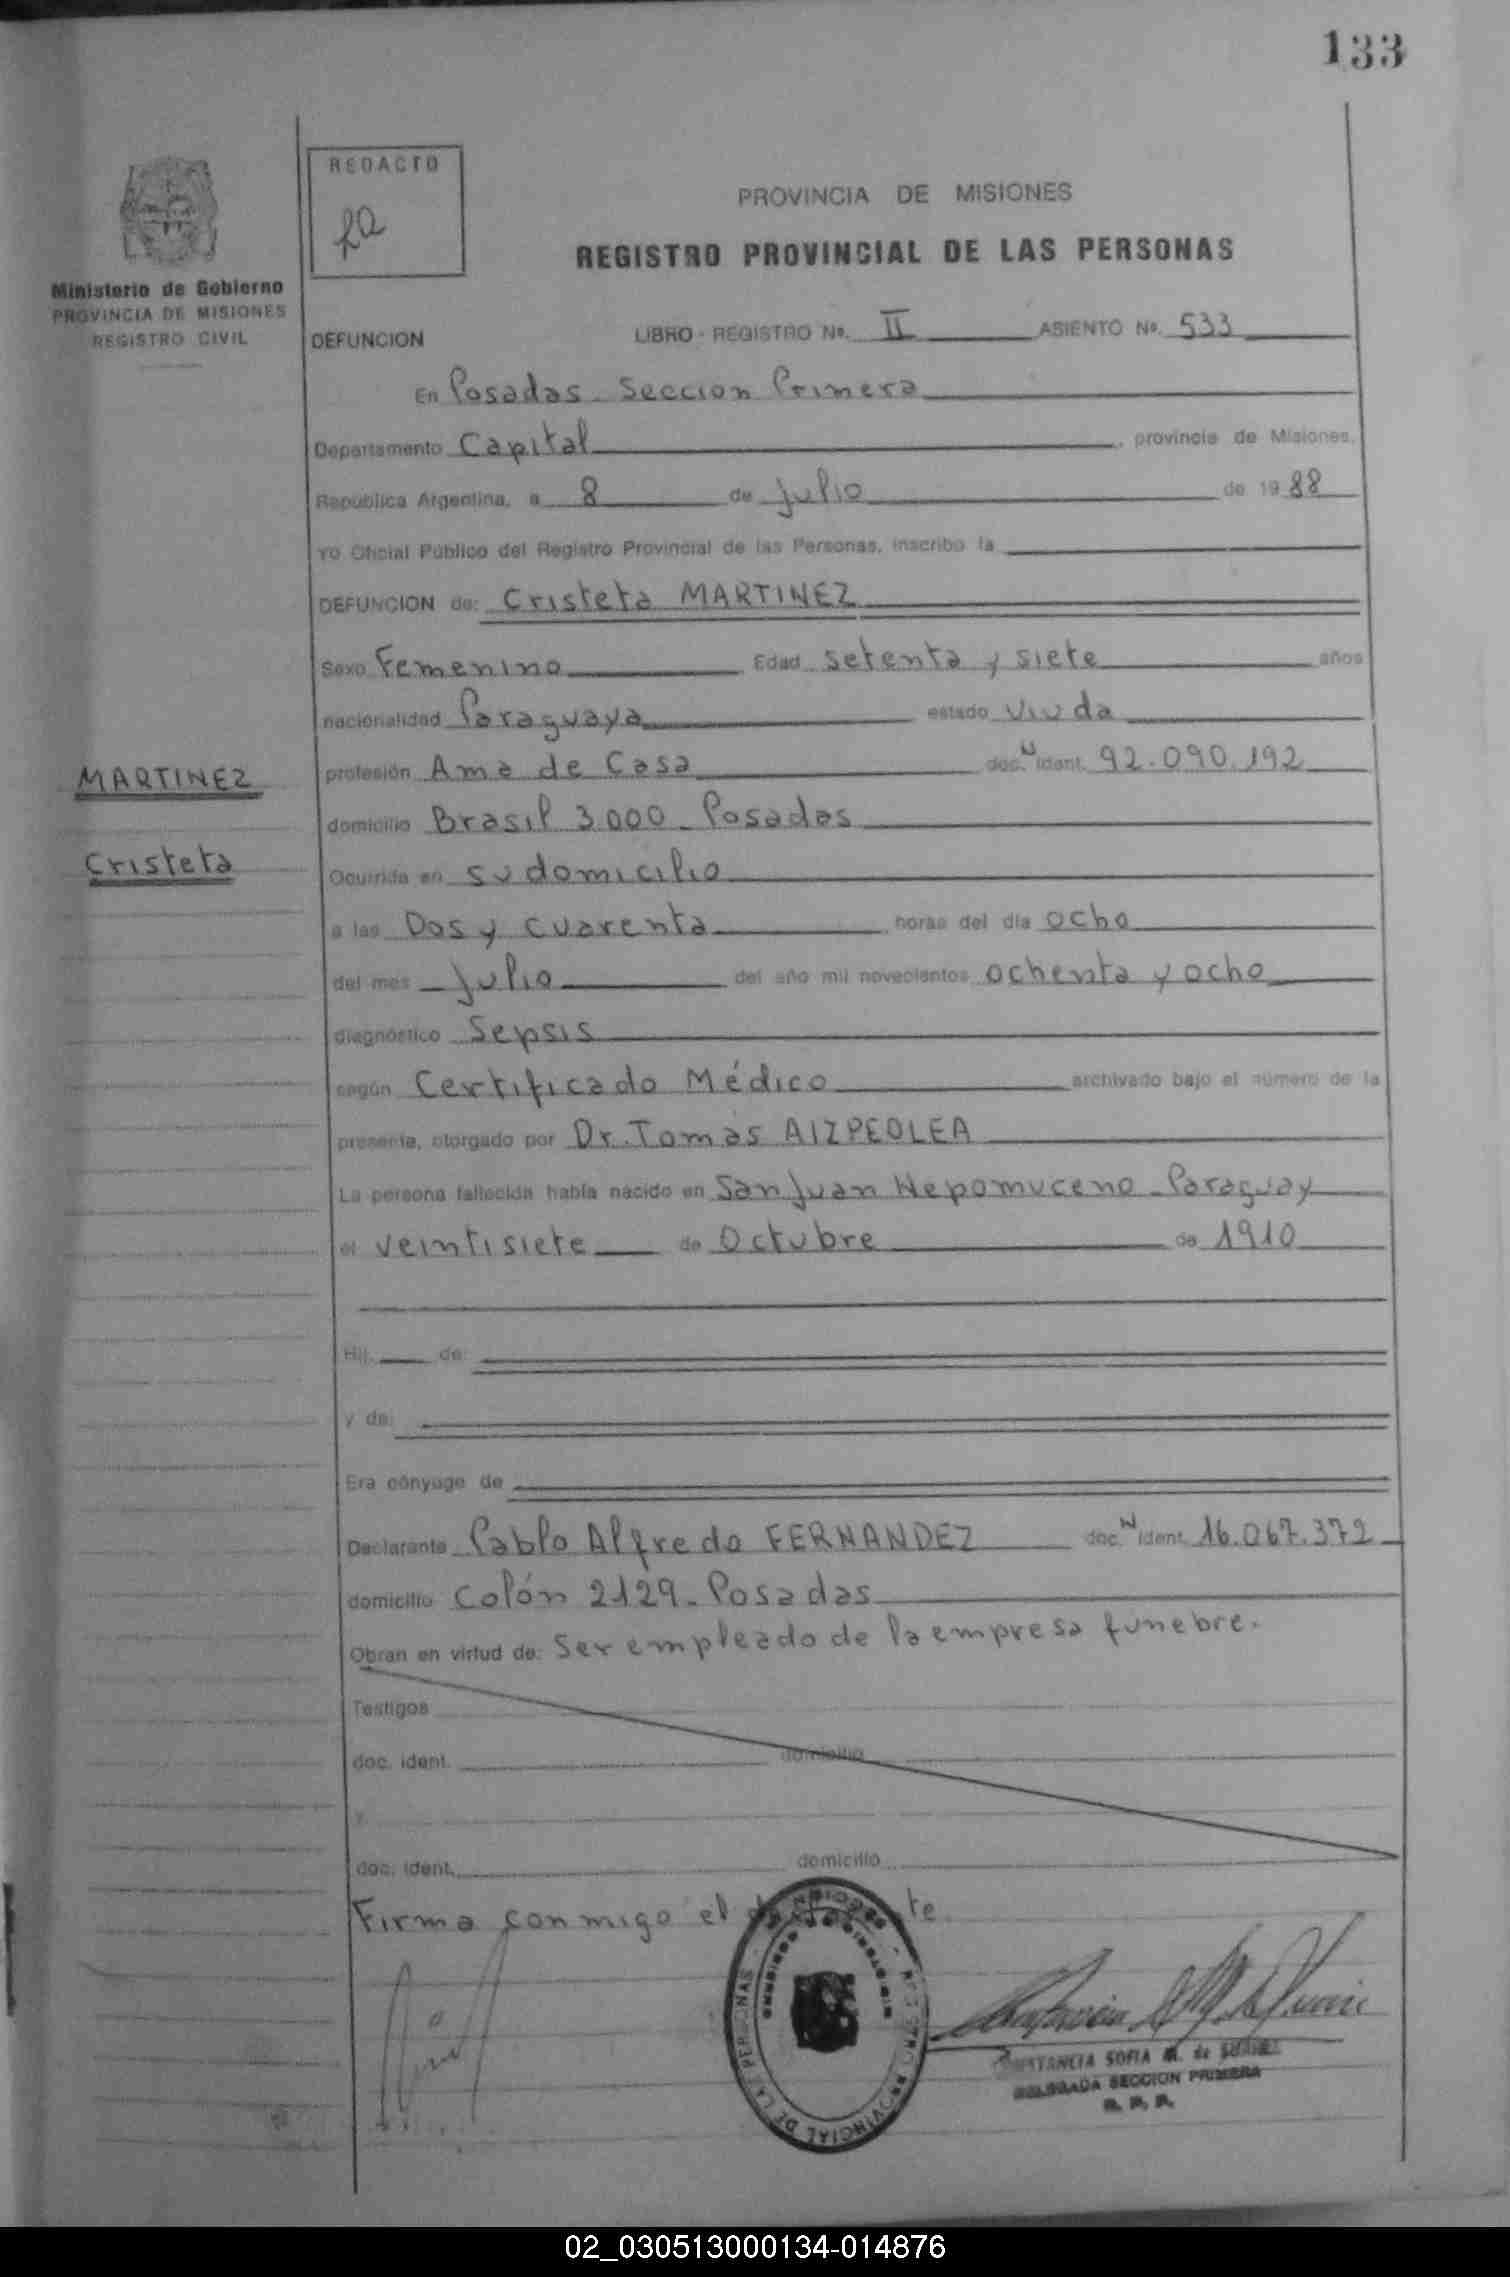 133
REDACTO
PROVINCIA DE MISIONES
REGISTRO PROVINCIAL DE LAS PERSONAS
Ministerio de Gobierno
PROVINCIA DE MISIONES
REGISTRO CIVIL
DEFUNCION LIBRO - REGISTRO No. II ASIENTO No. 533
En Posadas - Seccion Primera
Departamento Capital, provincia de Misiones,
República Argentina, a 8 de julio de 1988
Yo Oficial Público del Registro Provincial de las Personas, inscribo la
DEFUNCION de: Cristeta MARTINEZ
Sexo Femenino Edad setenta y siete años
nacionalidad Paraguaya estado viuda
MARTINEZ
profesión Ama de Casa doc. N ident. 92.090.192
domicilio Brasil 3.000 - Posadas
Cristeta
Ocurrida en su domicilio
a las Dos y cuarenta horas del día ocho
del mes julio del año mil novecientos ochenta y ocho
diagnóstico Sepsis
según Certificado Médico archivado bajo el número de la
presente, otorgado por Dr. Tomas AIZPEOLEA
La persona fallecida había nacido en San Juan Nepomuceno - Paraguay
el veintisiete de Octubre de 1910
Hij de:
y de:
Era cónyuge de
Declarante Pablo Alfredo FERNANDEZ doc. N ident. 16.067.372
domicilio Colón 2129 - Posadas
Obran en virtud de: Ser empleado de la empresa funebre.
Testigos
doc. ident. domicilio
y
doc. ident. domicilio
Firma conmigo el
REGISTRO PROVINCIAL DE LAS PERSONAS
CONSTANCIA SOFIA M. de
DELEGADA SECCION PRIMERA
R. P. P.
02_030513000134-014876